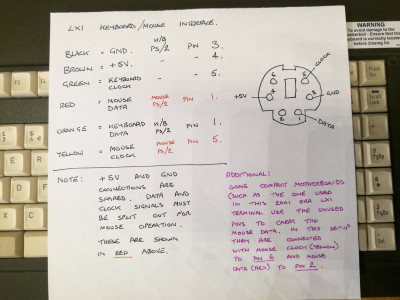 LX1 KEYBOARD/MOUSE INTERFACE.
K/B PS/2 PIN
BLACK = GND. 3.
BROWN = +5V. - - 4.
GREEN = KEYBOARD CLOCK - - 5.
RED = MOUSE DATA MOUSE PS/2 PIN 1.
ORANGE = KEYBOARD DATA K/B PS/2 PIN 1.
YELLOW = MOUSE CLOCK MOUSE PS/2 PIN 5.
CLOCK
6 5
+5V 4 3 GND
2 1
DATA
NOTE: +5V AND GND
CONNECTIONS ARE
SHARED. DATA AND
CLOCK SIGNALS MUST
BE SPLIT OUT FOR
MOUSE OPERATION.
THESE ARE SHOWN
IN RED ABOVE.
ADDITIONAL:
SOME COMPACT MOTHERBOARDS
(SUCH AS THE ONE USED
IN THIS 2001 ERA LX1
TERMINAL USE THE UNUSED
PINS TO CARRY THE
MOUSE DATA. IN THIS SETUP
THEY ARE CONNECTED
WITH MOUSE CLOCK (YELLOW)
TO PIN 6 AND MOUSE
DATA (RED) TO PIN 2.
WARNING
To avoid damage to the
before closing lid
Scroll
Lock
PgUp
PgDn